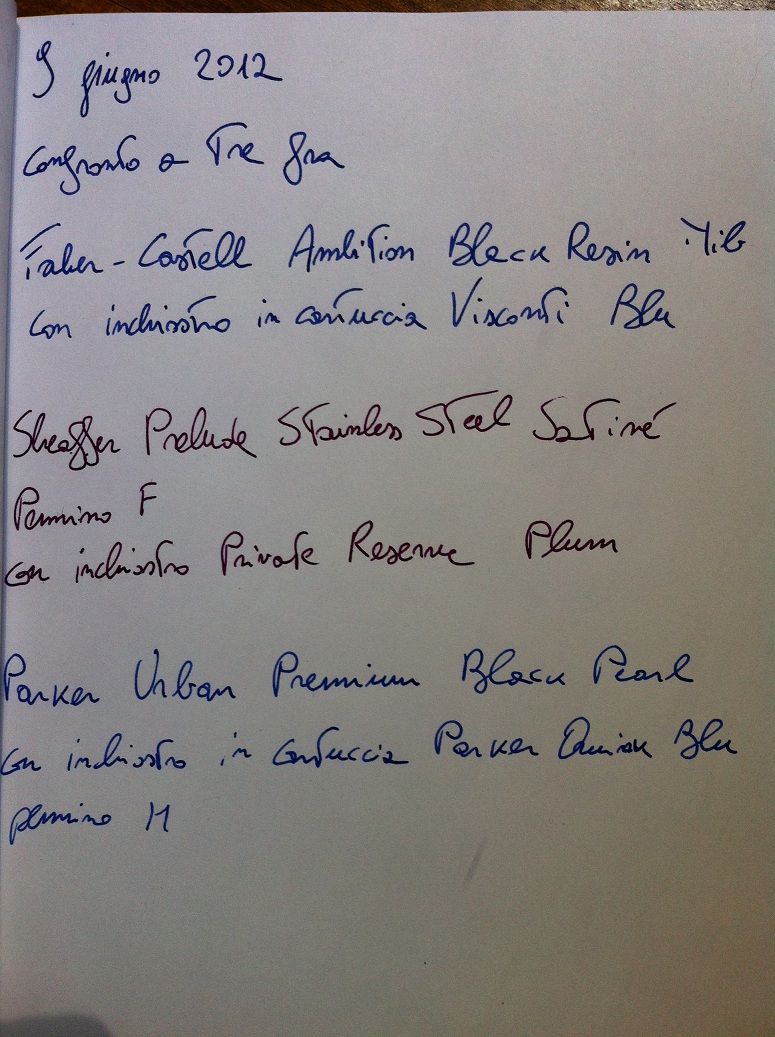 9 giugno 2012
Confronto a Tre fra
Faber-Castell Ambition Black Resin
con inchiostro in cartuccia Visconti Blu
Sheaffer Prelude Stainless Steel Satiné
Pennino F
con inchiostro Private Reserve Plum
Parker Urban Premium Black Pearl
con inchiostro in cartuccia Parker Quink Blu
pennino M